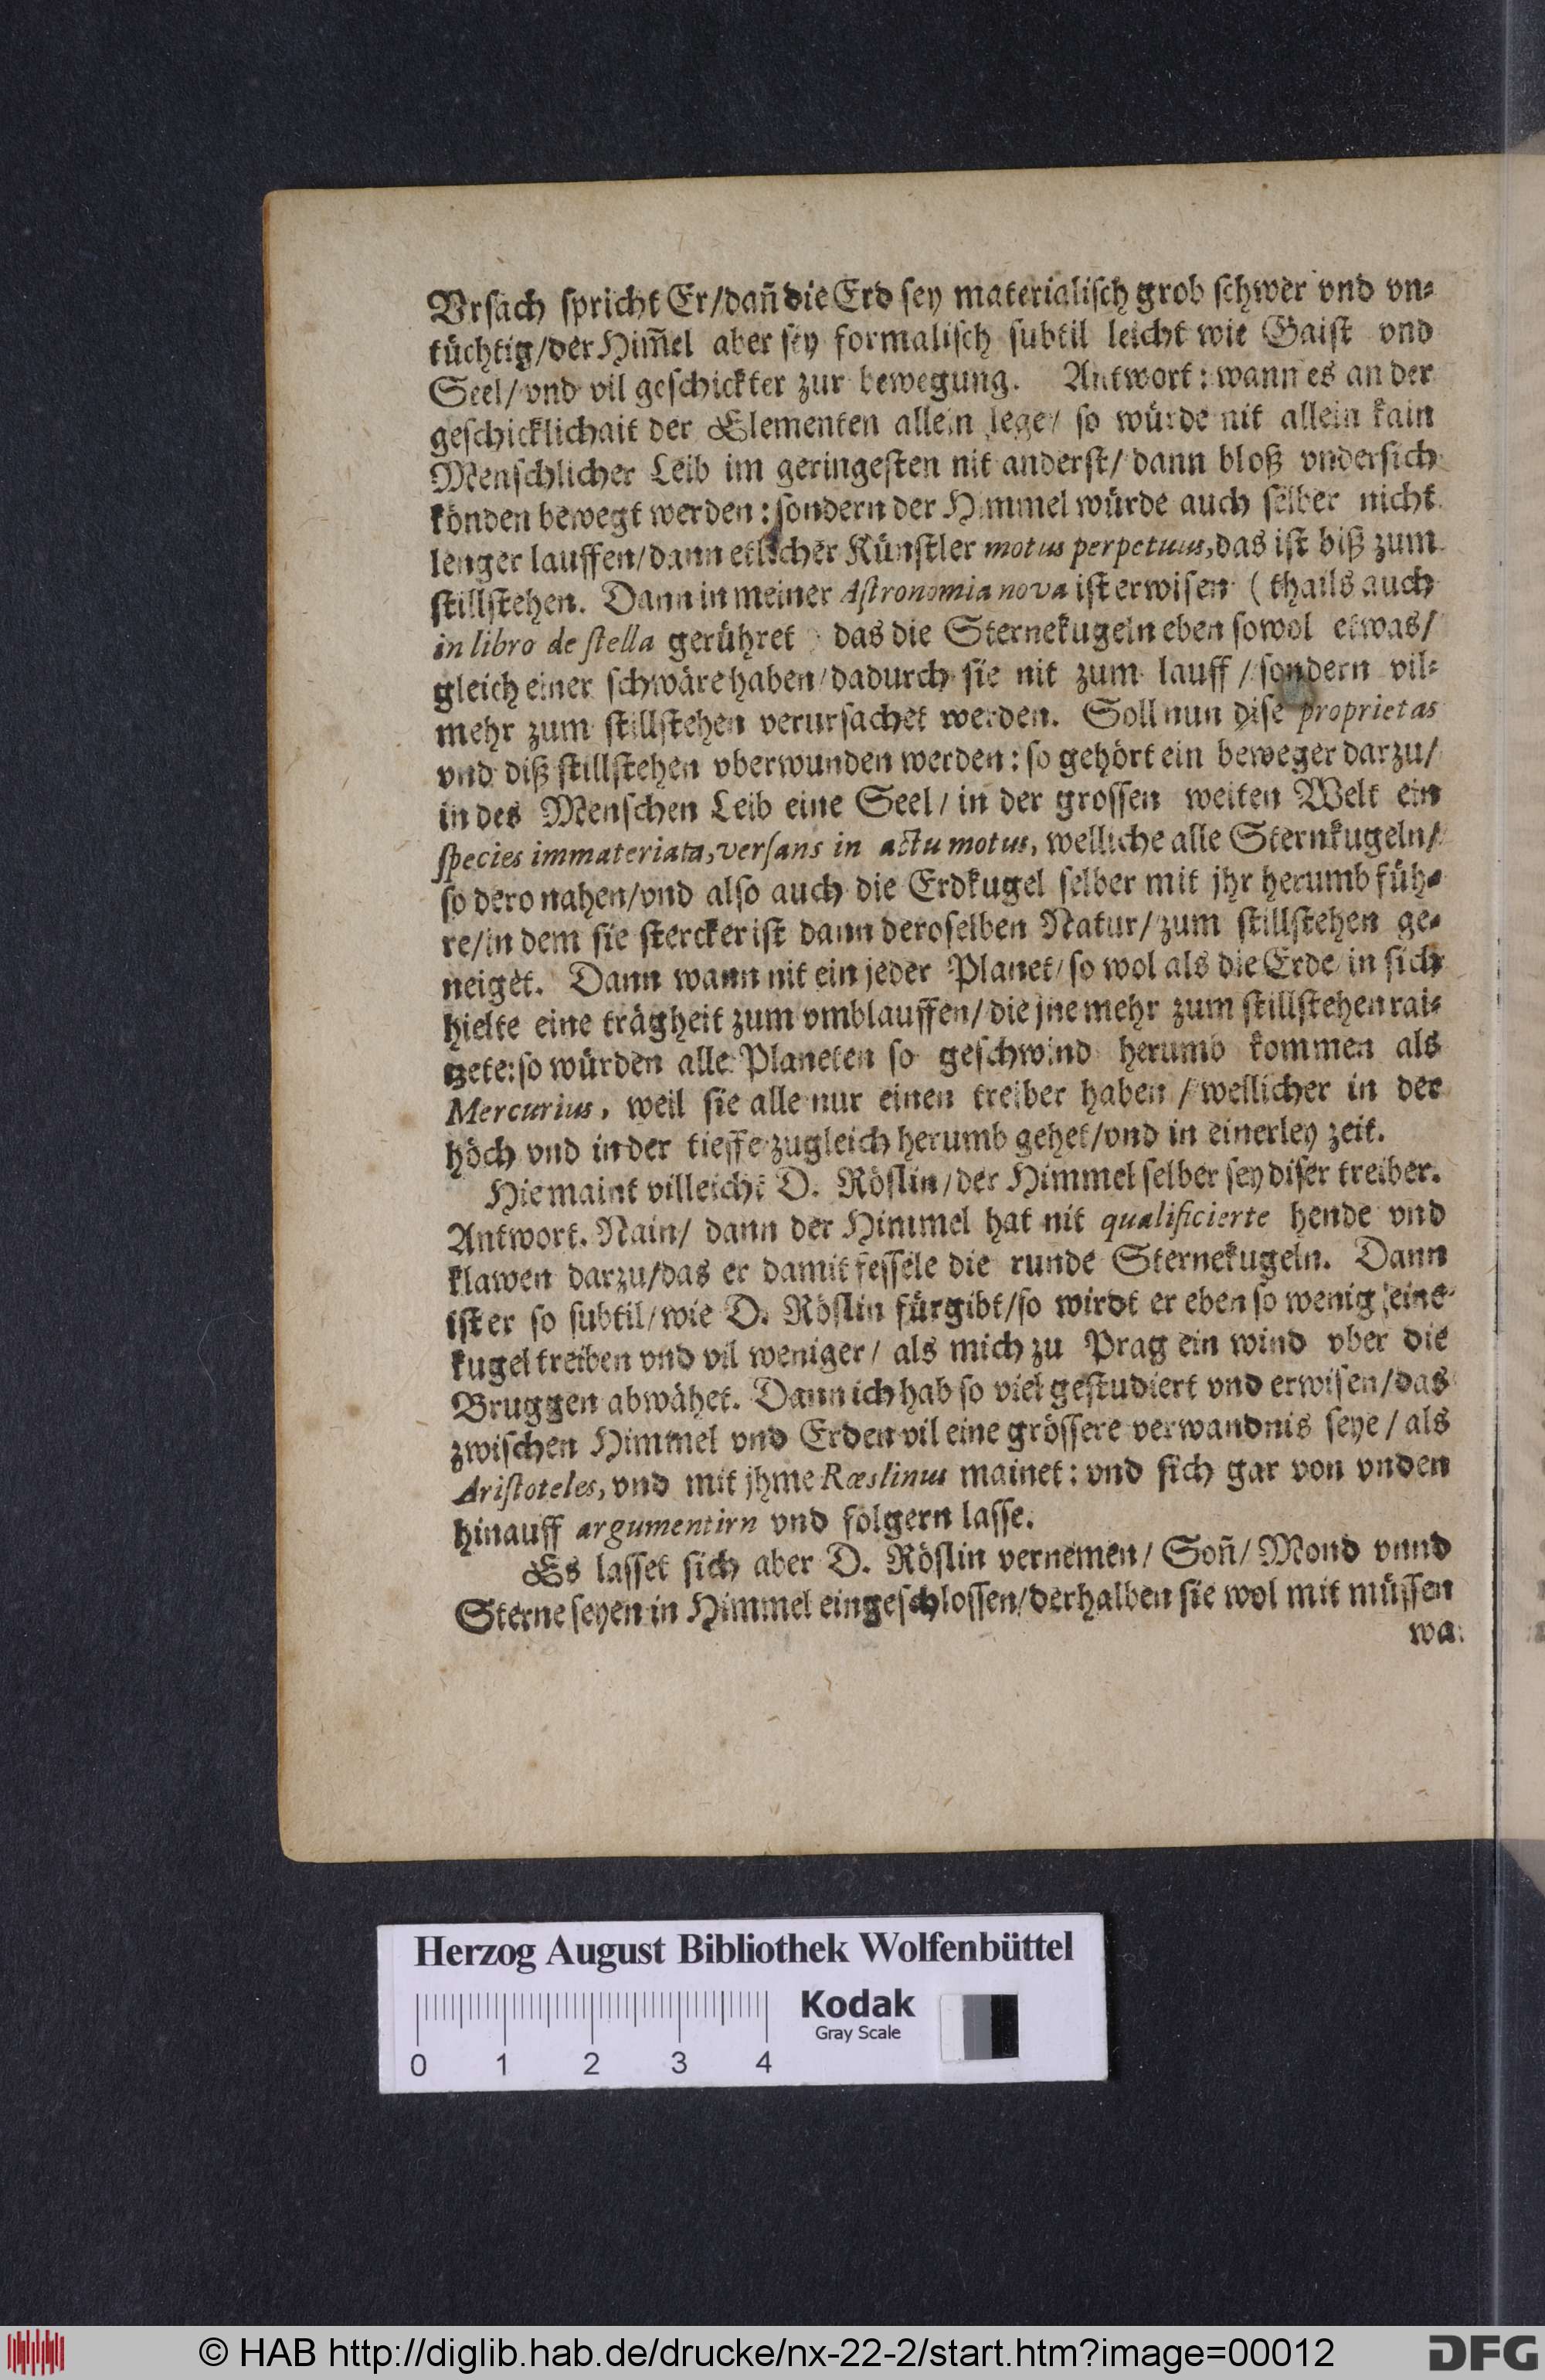 Vrſach ſpricht Er/dañ die Erd ſey materialiſch grob ſchwer vnd vn⸗
tüchtig/der Him̃el aber ſey formaliſch ſubtil leicht wie Gaiſt vnd
Seel/ vnd vil geſchickter zur bewegung. Antwort: wann es an der
geſchicklichait der Elementen allein lege/ ſo würde nit allein kain
Menſchlicher Leib im geringeſten nit anderſt/ dann bloß vnderſich
könden bewegt werden: ſondern der Himmel würde auch ſelber nicht
lenger lauffen/dann etlicher Künſtler motus perpetuus, das iſt biß zum
ſtillſtehen. Dann in meiner Aſtronomia nova iſt erwiſen ( thails auch
in libro de ſtella gerühret ) das die Sternekugeln eben ſowol etwas/
gleich einer ſchwäre haben/dadurch ſie nit zum lauff / ſondern vil⸗
mehr zum ſtillſtehen verurſachet werden. Soll nun diſe proprietas
vnd diß ſtillſtehen vberwunden werden: ſo gehört ein beweger darzu/
in des Menſchen Leib eine Seel/ in der groſſen weiten Welt ein
ſpecies immateriata, verſans in actu motus, welliche alle Sternkugeln/
ſo dero nahen/vnd alſo auch die Erdkugel ſelber mit jhr herumb füh⸗
re/in dem ſie ſtercker iſt dann deroſelben Natur/ zum ſtillſtehen ge⸗
neiget. Dann wann nit ein jeder Planet/ ſo wol als die Erde in ſich
hielte eine trägheit zum vmblauffen/ die jne mehr zum ſtillſtehen rai⸗
tzete: ſo würden alle Planeten ſo geſchwind herumb kommen als
Mercurius, weil ſie alle nur einen treiber haben / wellicher in der
höch vnd in der tieffe zugleich herumb gehet/vnd in einerley zeit.
Hie maint villeicht D. Röſlin/der Himmel ſelber ſey diſer treiber.
Antwort. Nain/ dann der Himmel hat nit qualificierte hende vnd
klawen darzu/das er damit feſſele die runde Sternekugeln. Dann
iſt er ſo ſubtil/wie D. Röſlin fürgibt/ſo wirdt er eben ſo wenig eine
kugel treiben vnd vil weniger/ als mich zu Prag ein wind vber die
Bruggen abwähet. Dann ich hab ſo viel geſtudiert vnd erwiſen/das
zwiſchen Himmel vnd Erden vil eine gröſſere verwandnis ſeye/ als
Ariſtoteles, vnd mit jhme Rœslinus mainet: vnd ſich gar von vnden
hinauff argumentirn vnd folgern laſſe.
Es laſſet ſich aber D. Röſlin vernemen/ Soñ/ Mond vnnd
Sterne ſeyen in Himmel eingeſchloſſen/derhalben ſie wol mit müſſen
wa⸗
Herzog August Bibliothek Wolfenbüttel
Kodak
Gray Scale
0 1 2 3 4
© HAB http://diglib.hab.de/drucke/nx-22-2/start.htm?image=00012
DFG